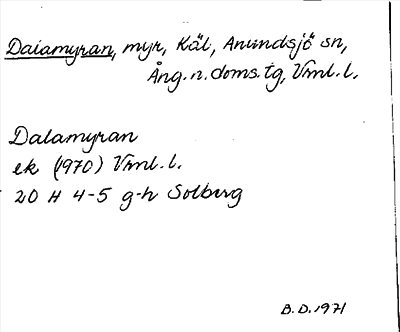 Daiamyran, myr, Käl, Anundsjö sn,
Ång. n. doms. tg, Vrml. l.
Dalamyran
ek (1970) Vrml. l.
20 H 4-5 g-h Solberg
B.D. 1971